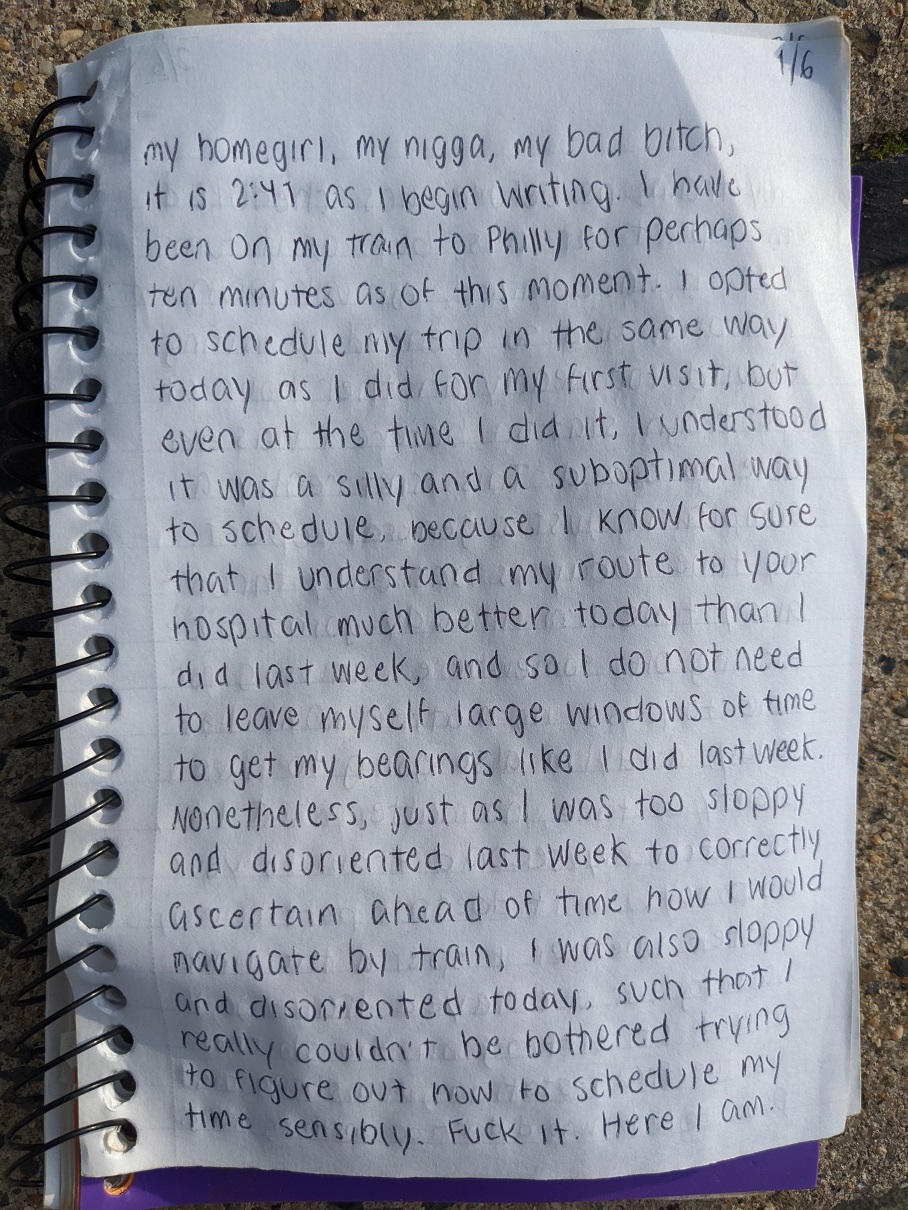 1/6
my homegirl, my nigga, my bad bitch,
it is 2:41 as I begin writing. I have
been on my train to Philly for perhaps
ten minutes as of this moment. I opted
to schedule my trip in the same way
today as I did for my first visit, but
even at the time I did it, I understood
it was a silly and a suboptimal way
to schedule, because I know for sure
that I understand my route to your
hospital much better today than I
did last week, and so I do not need
to leave myself large windows of time
to get my bearings like I did last week.
Nonetheless, just as I was too sloppy
and disoriented last week to correctly
ascertain ahead of time how I would
navigate by train, I was also sloppy
and disoriented today, such that I
really couldn't be bothered trying
to figure out how to schedule my
time sensibly. Fuck it. Here I am.